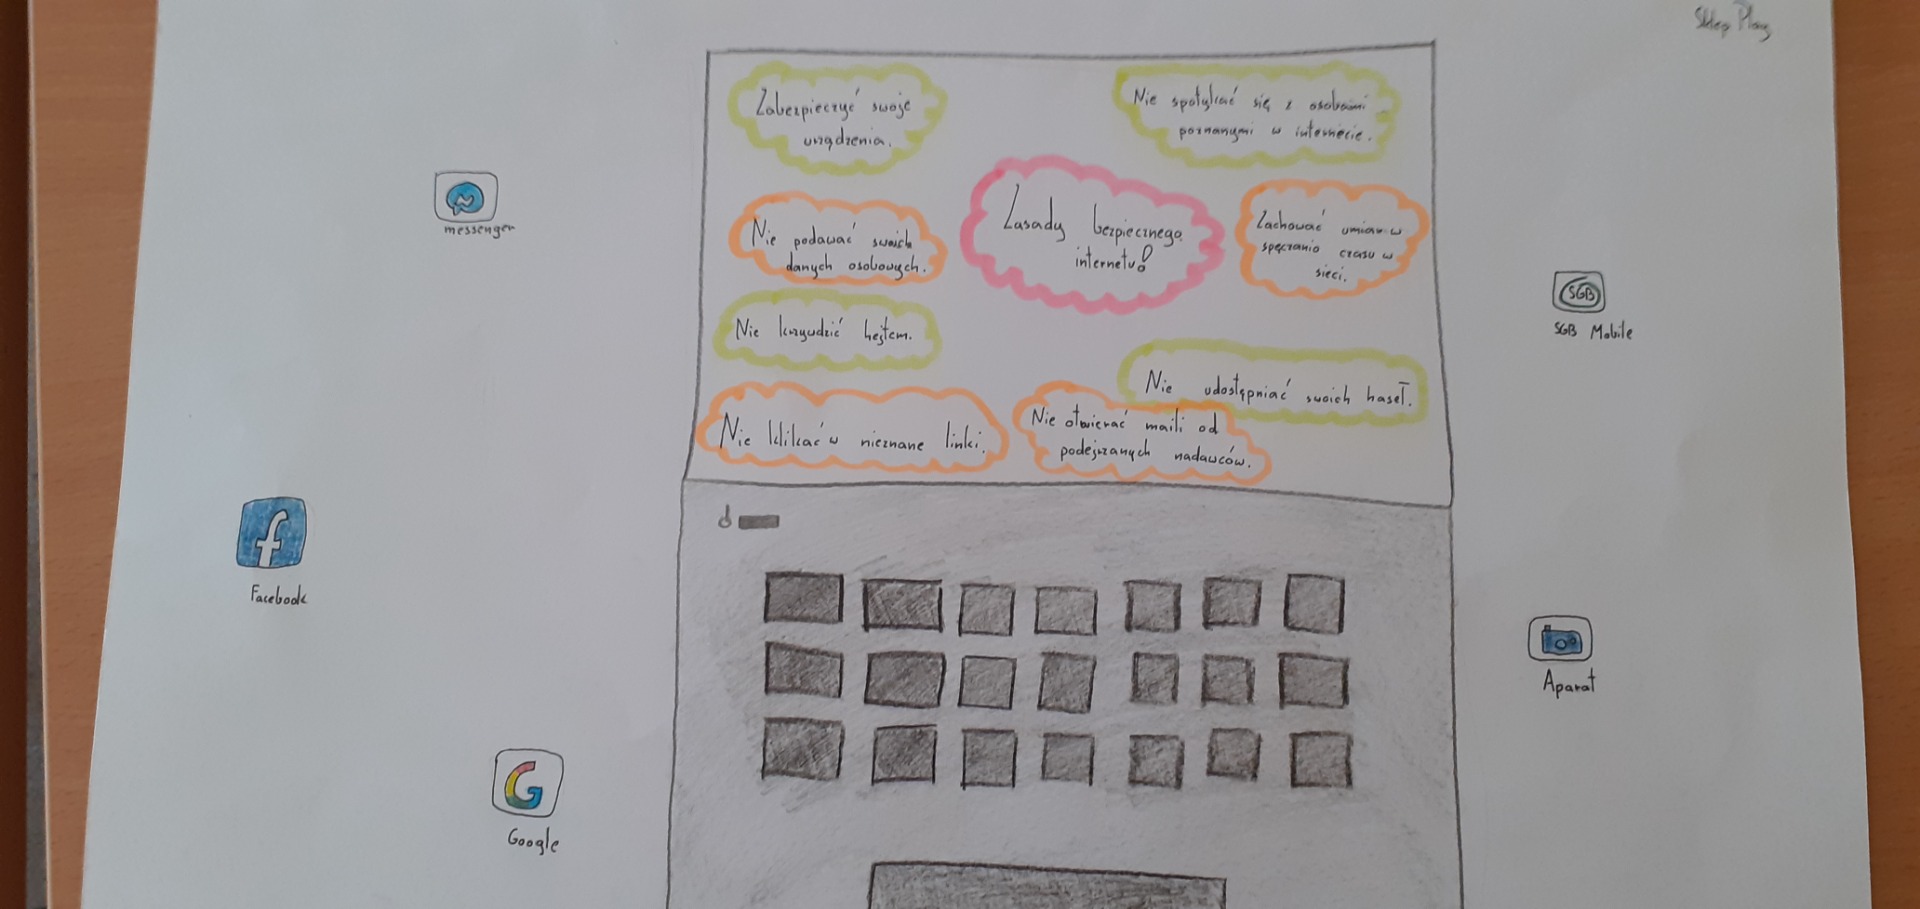 Sklep Play
Zabezpieczyć swoje
urządzenia.
Nie spotykać się z osobami
poznanymi w internecie.
messenger
Nie podawać swoich
danych osobowych.
Zasady bezpiecznego
internetu!
Zachować umiar w
spęczanio czasu w
sieci.
SGB
SGB Mobile
Nie krzywdzić hejtem.
Nie udostępniać swoich haseł.
Nie klikać w nieznane linki.
Nie otwierać maili od
podejrzanych nadawców.
f
Facebook
Aparat
G
Google